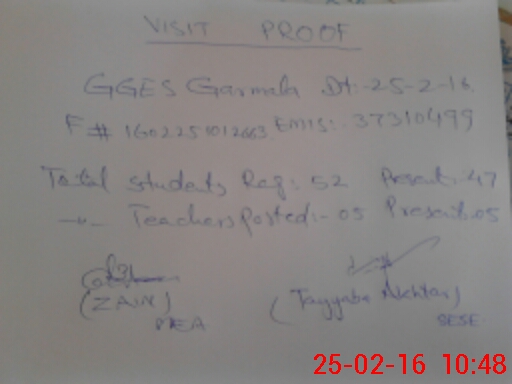 VISIT PROOF
GGES Garmala Dt:-25-2-16
F# 1602251012663 EMIS:-37310499
Total Students Reg:- 52 Present:-47
-"- Teachers Posted:- 05 Present:-05
(ZAIN) (Tayyaba Akhtar)
SESE
25-02-16 10:48